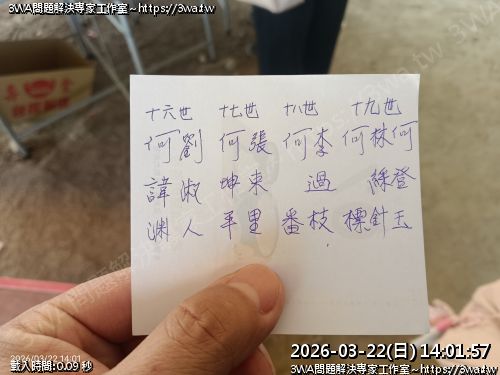 3WA問題解決專家工作室～https://3wa.tw
十六世 十七世 十八世 十九世
何劉 何張 何李 何林何
諱淑 坤東 過 綠登
渊人 平里 番枝 標針玉
2026/03/22 14:01
載入時間：0.09 秒
2026-03-22(日) 14:01:57
3WA問題解決專家工作室～https://3wa.tw